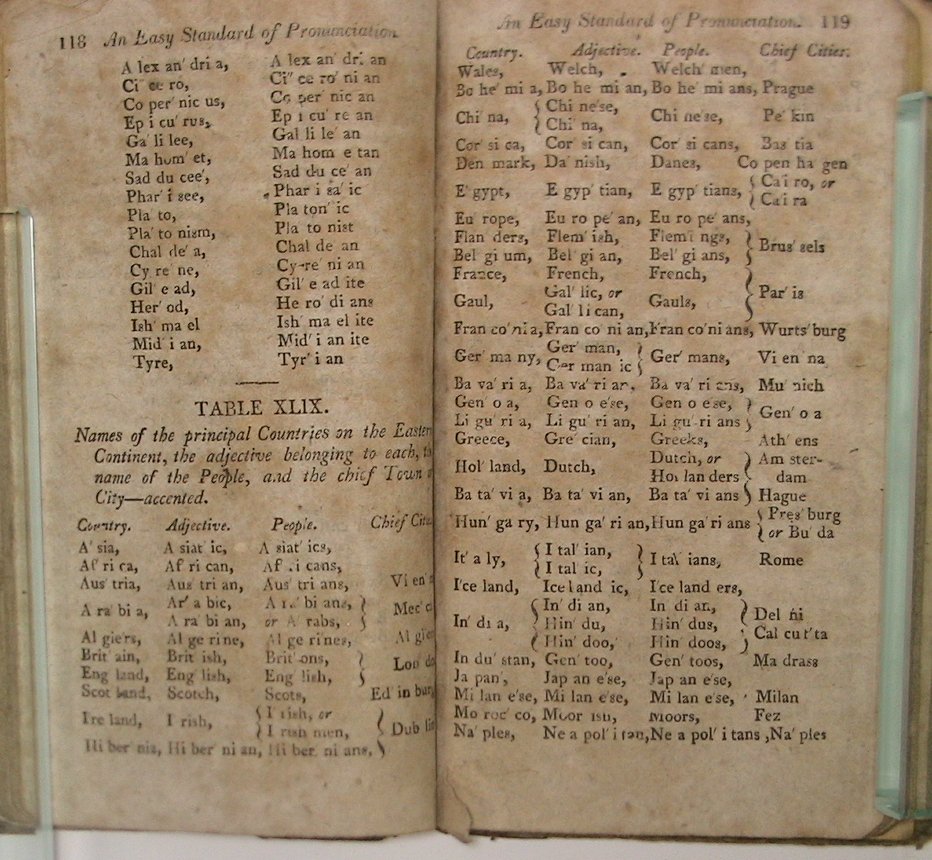 118 An Easy Standard of Pronunciation
A lex an' dri a, A lex an' dri an
Ci" ce ro, Ci" ce ro' ni an
Co per' nic us, Co per' nic an
Ep i cu' rus, Ep i cu' re an
Ga' li lee, Gal li le' an
Ma hom' et, Ma hom e tan
Sad du cee', Sad du ce' an
Phar' i see, Phar i sa' ic
Pla to, Pla ton' ic
Pla' to nism, Pla to nist
Chal de' a, Chal de an
Cy re' ne, Cy-re' ni an
Gil' e ad, Gil' e ad ite
Her' od, He ro' di ans
Ish' ma el Ish' ma el ite
Mid' i an, Mid' i an ite
Tyre, Tyr' i an
TABLE XLIX.
Names of the principal Countries on the Eastern
Continent, the adjective belonging to each,
name of the People, and the chief Town
City—accented.
Country. Adjective. People. Chief
A' sia, A siat' ic, A siat' ics,
Af' ri ca, Af ri can, Af ri cans,
Aus' tria, Aus tri an, Aus' tri ans, Vi en'
A ra' bi a, Ar' a bic, A ra' bi ans, Mec'
A ra' bi an, or A' rabs,
Al giers, Al ge rine, Al ge rines, Al gi
Brit' ain, Brit ish, Brit' ons, Lon' do
Eng land, Eng' lish, Eng lish,
Scot land, Scotch, Scots, Ed' in burg
Ire land, I rish, I rish, or Dub lin
I rish men,
Hi ber' nia, Hi ber' ni an, Hi ber' ni ans,
An Easy Standard of Pronunciation. 119
Country. Adjective. People. Chief Cities.
Wales, Welch, Welch' men,
Bo he' mi a, Bo he' mi an, Bo he' mi ans, Prague
Chi' na, Chi ne'se, Chi ne'se, Pe' kin
Chi' na,
Cor' si ca, Cor' si can, Cor' si cans, Bas tia
Den mark, Da' nish, Danes, Co pen ha gen
E' gypt, E gyp' tian, E gyp' tians, Cai' ro, or
Cai ra
Eu' rope, Eu ro pe' an, Eu ro pe' ans,
Flan ders, Flem' ish, Flemi ngs, Brus' sels
Bel' gi um, Bel' gi an, Bel' gi ans,
France, French, French, Par' is
Gaul, Gal' lic, or Gauls,
Gal' li can,
Fran co' ni a, Fran co ni an, Fran co' ni ans, Wurts' burg
Ger' ma ny, Ger' man, Ger' mans, Vi en' na
Ger man ic
Ba va' ri a, Ba va' ri an, Ba va' ri ans, Mu' nich
Gen' o a, Gen o e'se, Gen o e'se, Gen' o a
Li gu' ri a, Li gu' ri an, Li gu' ri ans
Greece, Gre' cian, Greeks, Ath' ens
Hol' land, Dutch, Dutch, or Am ster-
Hol lan ders dam
Ba ta' vi a, Ba ta' vi an, Ba ta' vi ans Hague
Hun' ga ry, Hun ga' ri an, Hun ga' ri ans Pres' burg
or Bu' da
It' a ly, I tal' ian, I tal' ians, Rome
I tal' ic,
I'ce land, Ice land ic, I'ce land ers,
In' di a, In' di an, In' di an, Del hi
Hin' du, Hin' dus, Cal cut' ta
Hin' doo, Hin' doos,
In du' stan, Gen' too, Gen' toos, Ma drass
Ja pan', Jap an e'se, Jap an e'se,
Mi lan e'se, Mi lan e'se, Mi lan e'se, Milan
Mo roc' co, Moor ish, Moors, Fez
Na' ples, Ne a pol' i tan, Ne a pol' i tans, Na' ples